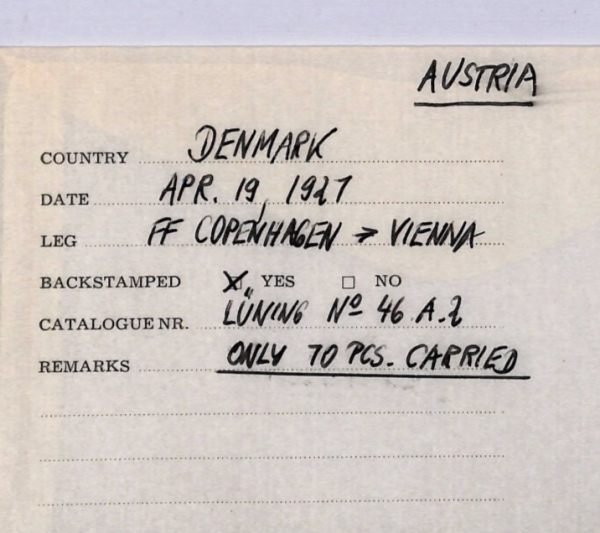 AUSTRIA
COUNTRY DENMARK
DATE APR. 19, 1927
LEG FF COPENHAGEN → VIENNA
BACKSTAMPED ☒ YES ☐ NO
CATALOGUE NR. LÜNING Nº 46 A.2
REMARKS ONLY 70 PCS. CARRIED